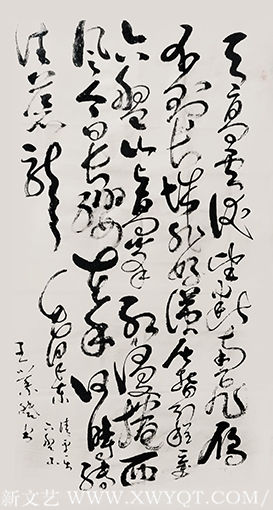 天高云淡望断南飞雁
不到长城非好汉屈指行程二万
六盘山上高峰红旗漫卷西
风今日长缨在手何时缚
住苍龙
毛泽东
清平乐
六盘山
新文艺 / WWW.XWYQT.COM/